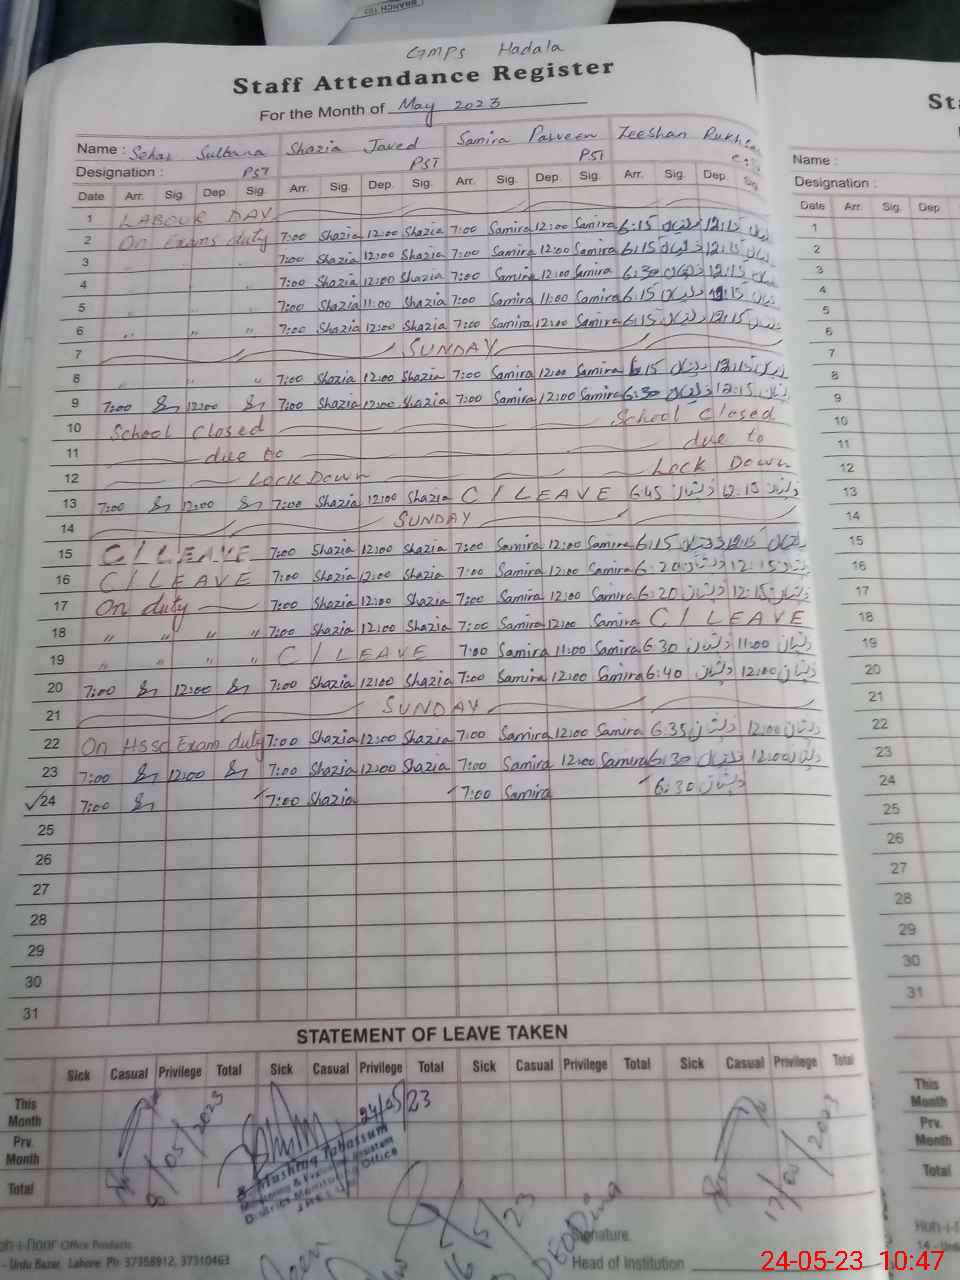 BRANCH
GMPS Hadala
Staff Attendance Register
For the Month of May 2023
Name : Sehar Sultana Shazia Javed Samina Parveen Zeeshan
Designation : PST PST PST
Date Arr. Sig. Dep. Sig. Arr. Sig. Dep. Sig. Arr. Sig. Dep. Sig. Arr. Sig. Dep. Sig
1 LABOUR DAY
2 On Exams duty 7:00 Shazia 12:00 Shazia 7:00 Samina 12:00 Samina 6:15 12:15
3 7:00 Shazia 12:00 Shazia 7:00 Samina 12:00 Samina 6:15 12:15
4 7:00 Shazia 12:00 Shazia 7:00 Samina 12:00 Samina 6:30 12:15
5 7:00 Shazia 11:00 Shazia 7:00 Samina 11:00 Samina 6:15
6 " " " 7:00 Shazia 12:00 Shazia 7:00 Samina 12:00 Samina 6:15 12:15
7 SUNDAY
8 " " " 7:00 Shazia 12:00 Shazia 7:00 Samina 12:00 Samina 6:15 12:15
9 7:00 12:00 7:00 Shazia 12:00 Shazia 7:00 Samina 12:00 Samina 6:30 12:15
10 School Closed School Closed
11 due to due to
12 Lock Down Lock Down
13 7:00 12:00 7:00 Shazia 12:00 Shazia C/LEAVE 6:45 12:15
14 SUNDAY
15 C/LEAVE 7:00 Shazia 12:00 Shazia 7:00 Samina 12:00 Samina 6:15 12:15
16 C/LEAVE 7:00 Shazia 12:00 Shazia 7:00 Samina 12:00 Samina 6:20 12:15
17 On duty 7:00 Shazia 12:00 Shazia 7:00 Samina 12:00 Samina 6:20 12:15
18 " " " " 7:00 Shazia 12:00 Shazia 7:00 Samina 12:00 Samina C/LEAVE
19 " " " " C/LEAVE 7:00 Samina 11:00 Samina 6:30 11:00
20 7:00 12:00 7:00 Shazia 12:00 Shazia 7:00 Samina 12:00 Samina 6:40 12:00
21 SUNDAY
22 On HSSC Exam duty 7:00 Shazia 12:00 Shazia 7:00 Samina 12:00 Samina 6:35 12:00
23 7:00 12:00 7:00 Shazia 12:00 Shazia 7:00 Samina 12:00 Samina 6:30 12:00
✓24 7:00 7:00 Shazia 7:00 Samina 6:30
25
26
27
28
29
30
31
STATEMENT OF LEAVE TAKEN
Sick Casual Privilege Total Sick Casual Privilege Total Sick Casual Privilege Total Sick Casual Privilege Total
This Month
Prv. Month
Total
8/05/2023
24/05/23
Mushtaq Tabassum
Monitoring & Evaluation Assistant
District Monitoring Office
16/5/23
17/05/2023
Signature
Head of Institution
Office Products
Urdu Bazar, Lahore. Ph: 37358912, 37310463
St
Name :
Designation :
Date Arr. Sig. Dep
1
2
3
4
5
6
7
8
9
10
11
12
13
14
15
16
17
18
19
20
21
22
23
24
25
26
27
28
29
30
31
This Month
Prv. Month
Total
24-05-23 10:47